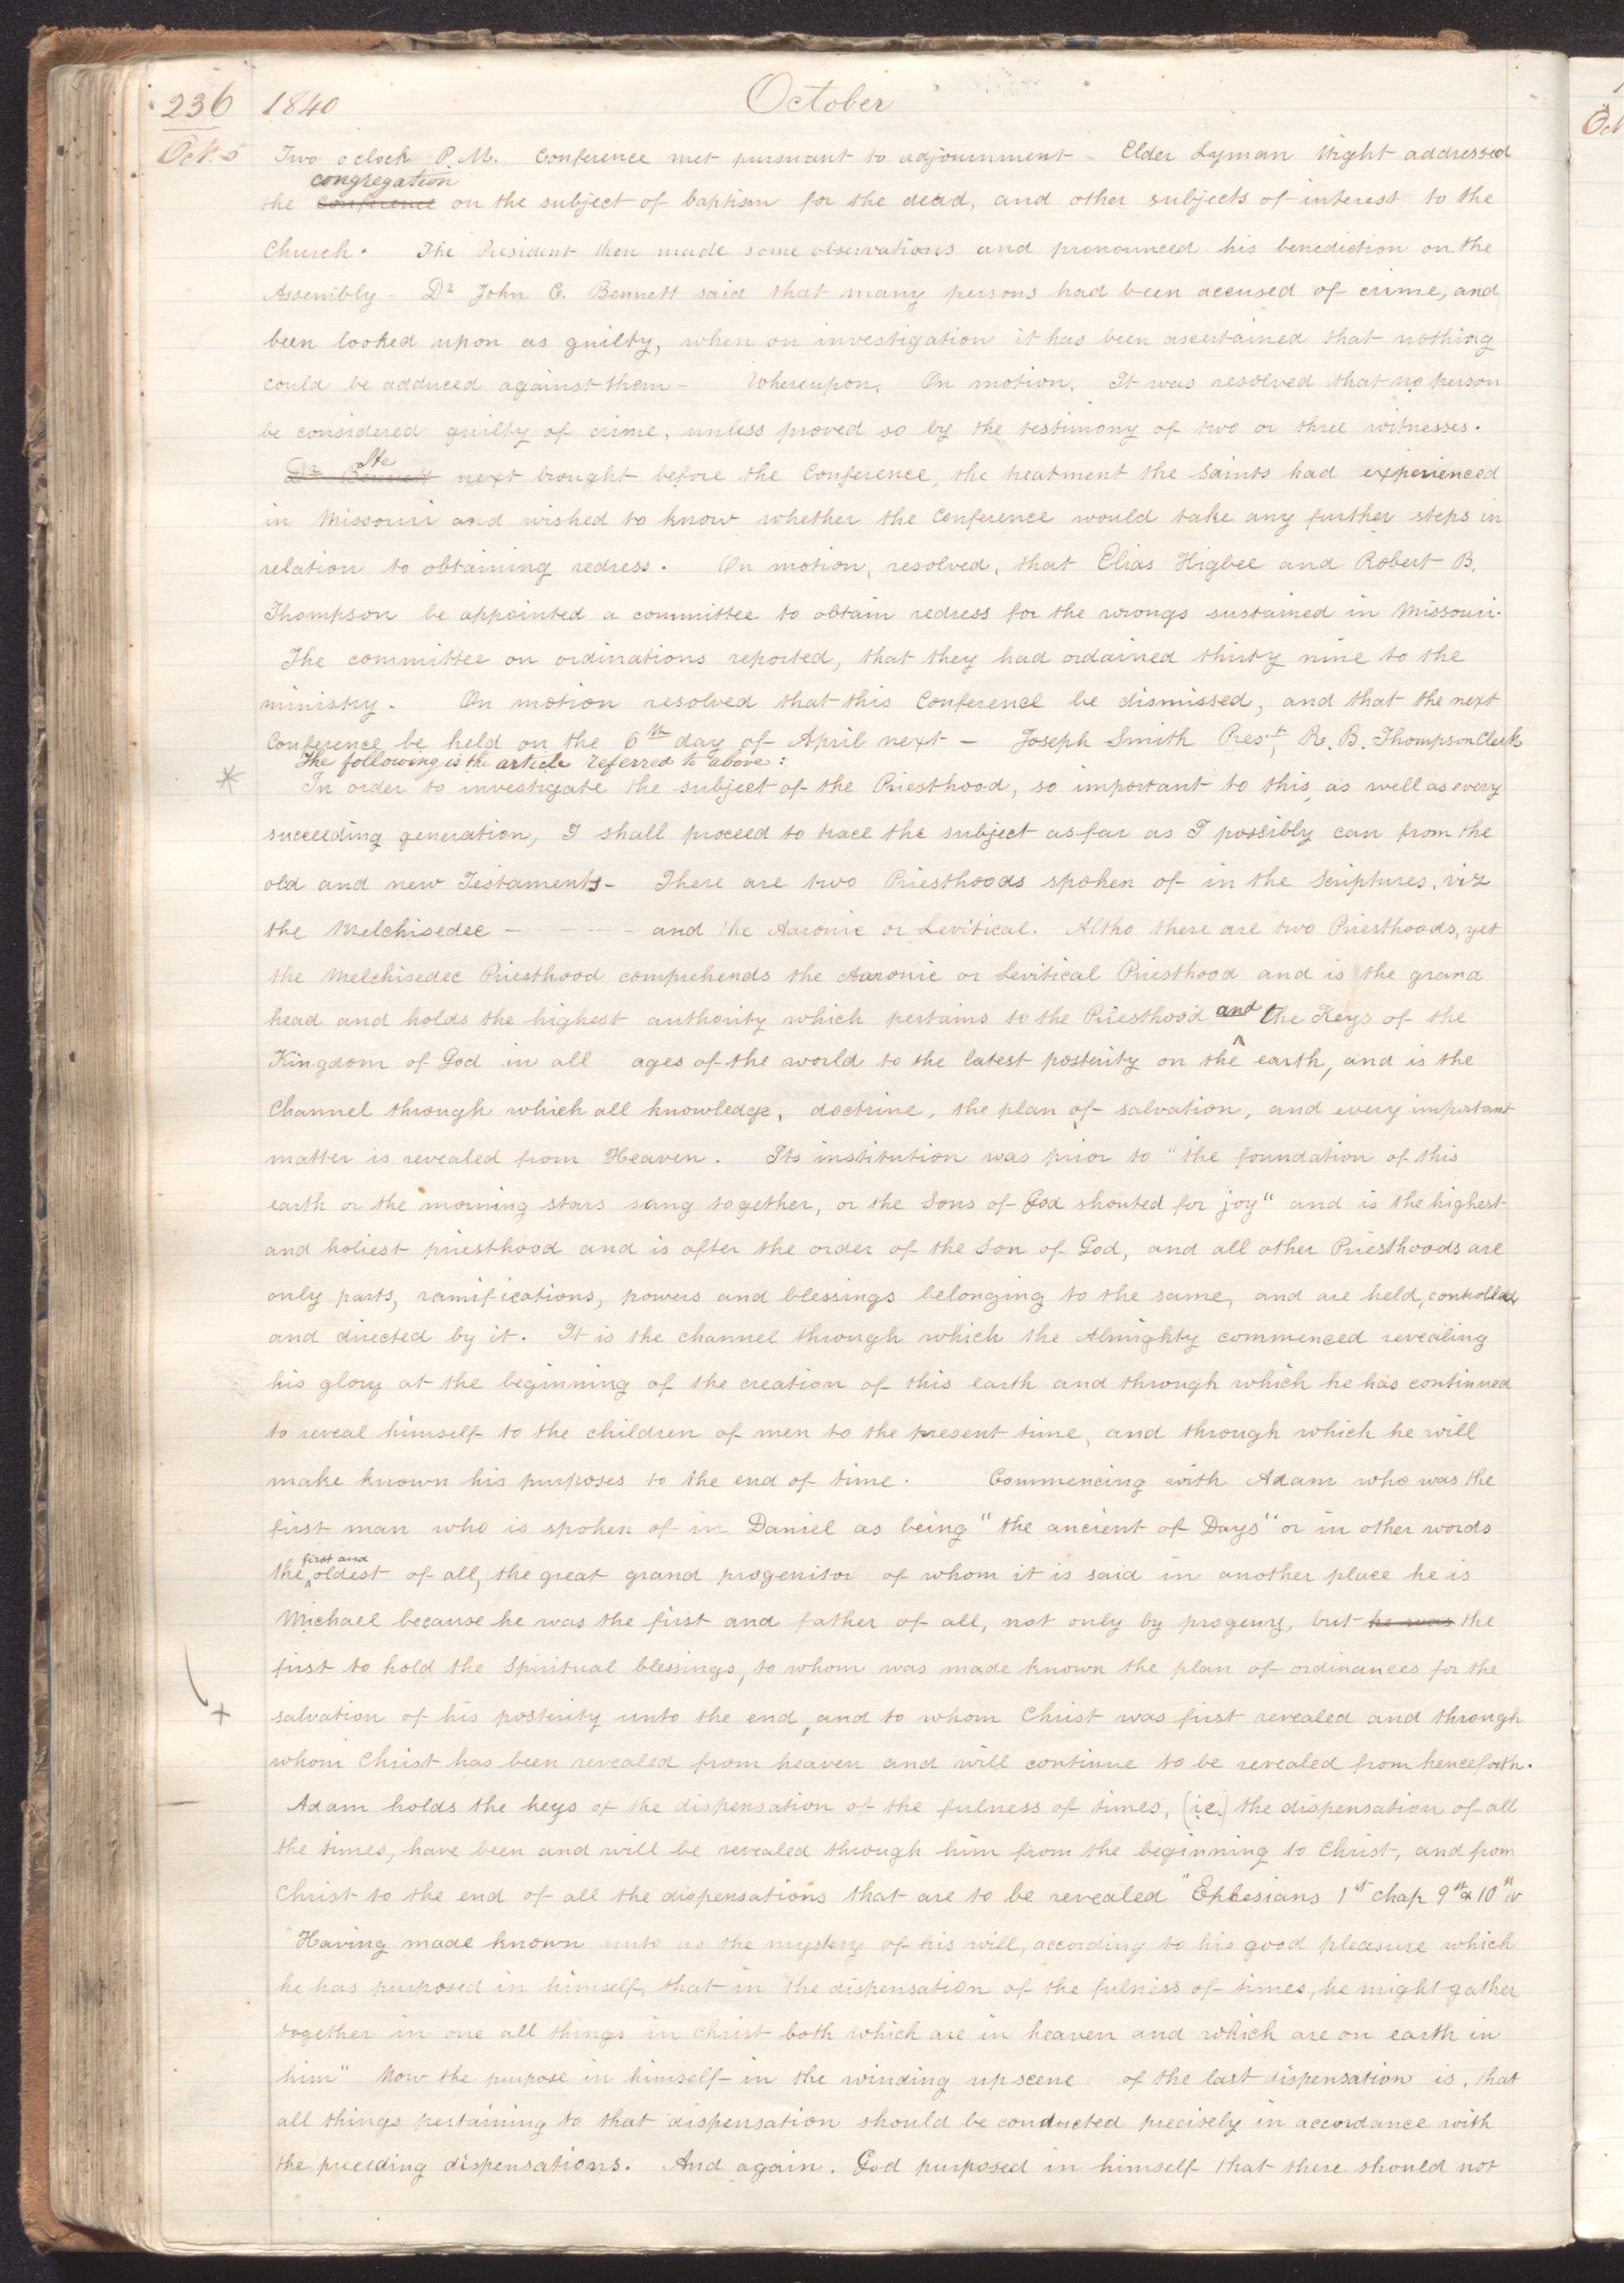 236 1840 October
Oct. 5 Two o clock P.M. Conference met pursuant to adjournment - Elder Lyman Wight addressed
congregation
the conference on the subject of baptism for the dead, and other subjects of interest to the
Church. The President then made some observations and pronounced his benediction on the
Assembly - Dr. John C. Bennett said that many persons had been accused of crime, and
been looked upon as guilty, when on investigation it has been ascertained that nothing
could be adduced against them - Whereupon, On motion, It was resolved that no person
be considered guilty of crime, unless proved so by the testimony of two or three witnesses.
He
Dr. Bennett next brought before the Conference, the treatment the Saints had experienced
in Missouri and wished to know whether the Conference would take any further steps in
relation to obtaining redress. On motion, resolved, that Elias Higbee and Robert B.
Thompson be appointed a committee to obtain redress for the wrongs sustained in Missouri.
The committee on ordinations reported, that they had ordained thirty nine to the
ministry. On motion resolved that this Conference be dismissed, and that the next
Conference be held on the 6th day of April next - Joseph Smith Prest, R. B. Thompson Clerk
The following is the article referred to above:
* In order to investigate the subject of the Priesthood, so important to this, as well as every
succeeding generation, I shall proceed to trace the subject as far as I possibly can from the
old and new Testaments - There are two Priesthoods spoken of in the Scriptures, viz
the Melchisedec - - - - - and the Aaronic or Levitical. Altho there are two Priesthoods, yet
the Melchisedec Priesthood comprehends the Aaronic or Levitical Priesthood and is the grand
head and holds the highest authority which pertains to the Priesthood and the Keys of the
Kingdom of God in all ages of the world to the latest posterity on the earth, and is the
Channel through which all knowledge, doctrine, the plan of salvation, and every important
matter is revealed from Heaven. Its institution was prior to "the foundation of this
earth or the morning stars sang together, or the Sons of God shouted for joy" and is the highest
and holiest priesthood and is after the order of the Son of God, and all other Priesthoods are
only parts, ramifications, powers and blessings belonging to the same, and are held, controlled,
and directed by it. It is the channel through which the Almighty commenced revealing
his glory at the beginning of the creation of this earth and through which he has continued
to reveal himself to the children of men to the present time, and through which he will
make known his purposes to the end of time. Commencing with Adam who was the
first man who is spoken of in Daniel as being "the ancient of Days" or in other words
first and
the oldest of all, the great grand progenitor of whom it is said in another place he is
Michael because he was the first and father of all, not only by progeny, but he was the
first to hold the Spiritual blessings, to whom was made known the plan of ordinances for the
+ salvation of his posterity unto the end, and to whom Christ was first revealed and through
whom Christ has been revealed from heaven and will continue to be revealed from henceforth.
Adam holds the keys of the dispensation of the fulness of times, (i.e.) the dispensation of all
the times, have been and will be revealed through him from the beginning to Christ, and from
Christ to the end of all the dispensations that are to be revealed "Ephesians 1st chap 9th & 10th v
"Having made known unto us the mystery of his will, according to his good pleasure which
he has purposed in himself, that in the dispensation of the fulness of times, he might gather
together in one all things in Christ both which are in heaven and which are on earth in
him" Now the purpose in himself in the winding up scene of the last dispensation is, that
all things pertaining to that dispensation should be conducted precisely in accordance with
the preceding dispensations. And again. God purposed in himself that there should not